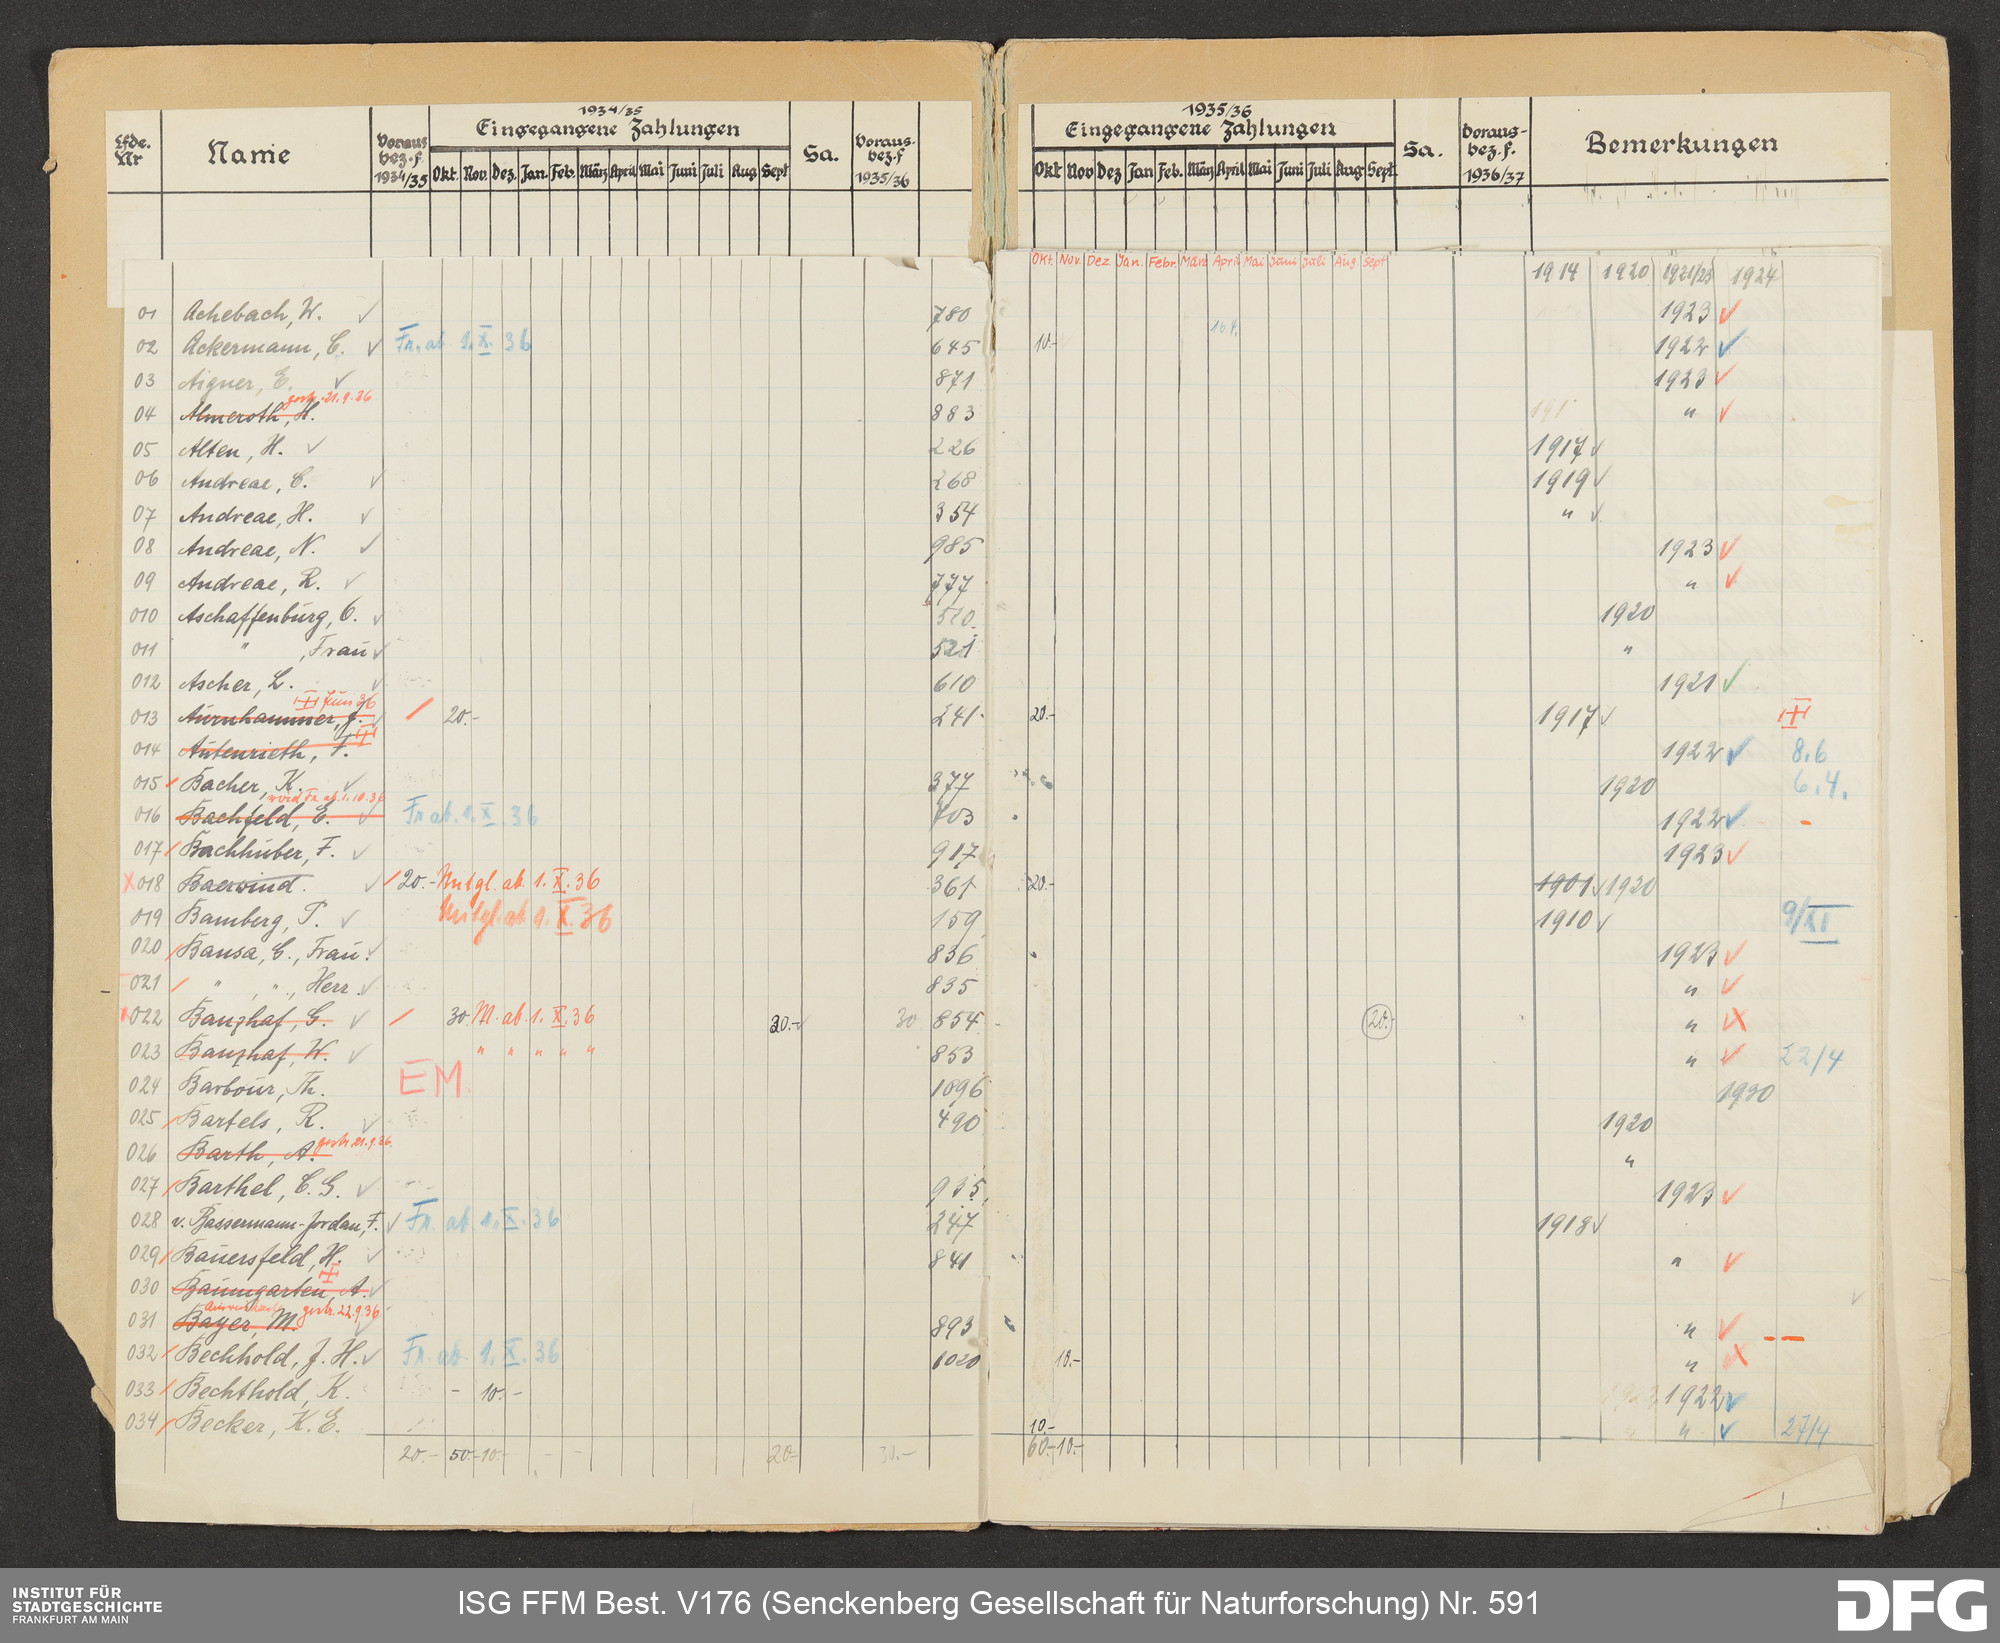 1934/35
Lfde. Nr Name Voraus bez. f. 1934/35 Eingegangene Zahlungen Sa. Voraus- bez. f 1935/36
Okt. Nov. Dez. Jan. Feb. März April Mai Juni Juli Aug Sept
1935/36
Eingegangene Zahlungen Sa. Voraus- bez. f. 1936/37 Bemerkungen
Okt Nov Dez Jan Feb. März April Mai Juni Juli Aug Sept.
Okt. Nov. Dez Jan. Febr. März April Mai Juni Juli Aug Sept 1914 1920 1921/23 1924
01 Achebach, W. 780 1923
02 Ackermann, C. Fr. ab 1. X. 36 645 10.- 16.4. 1922
03 Aigner, E. 871 1923
gestr. 21.9.36
04 Almeroth, H. 883 191 "
05 Alten, H. 226 1917
06 Andreae, C. 268 1919
07 Andreae, H. 354 "
08 Andreae, N. 985 1923
09 Andreae, R. 777 "
010 Aschaffenburg, O. 520 1920
011 " , Frau 521 "
012 Ascher, L. 610 1921
Juni 36
013 Aurnhammer, J. 20.- 241 20.- 1917
014 Autenrieth, F. 1922 8.6
015 Bacher, K. 377 1920 6.4.
wird Fr. ab. 1.10.36
016 Bachfeld, E. Fr ab. 1. X. 36 703 1922 -
017 Bachhuber, F. 917 1923
018 Baerwind. 20.- Mitgl. ab. 1. X. 36 361 20.- 1901 1920
019 Bamberg, P. Mitgl. ab 1. X. 36 159 1910 9/XI
020 Bansa, C., Frau. 836 1923
021 " , "., Herr. 835 "
022 Banzhaf, G. 30 M. ab. 1. X. 36 20.- 30 854 20.- "
023 Banzhaf, W. " " " " " 853 " 22/4
024 Barbour, Th. EM. 1096 1930
025 Bartels, R. 490 1920
gestr. 21.9.36.
026 Barth, A. "
027 Barthel, C. G. 935 1923
028 v. Bassermann-Jordan, F. Fr. ab 1. X. 36 247 1918
029 Bauersfeld, H. 841 "
030 Baumgarten, A.
gestr. 22.9.36
031 Bayer, M. 893 "
032 Bechhold, J. H. Fr. ab 1. X. 36 1020 10.- "
033 Bechthold, K. - 10.- 1922
034 Becker, K. E. 10.- " 27/4
20.- 50.- 10.- - - 20- 30.- 60.- 10.-
INSTITUT FÜR
STADTGESCHICHTE
FRANKFURT AM MAIN
ISG FFM Best. V176 (Senckenberg Gesellschaft für Naturforschung) Nr. 591
DFG